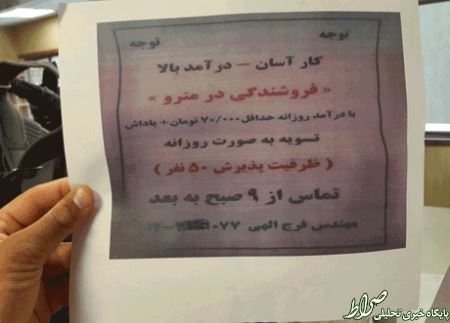 توجه توجه
کار آسان – درآمد بالا
« فروشندگی در مترو »
با درآمد روزانه حداقل ۷۰/۰۰۰ تومان + پاداش
تسویه به صورت روزانه
( ظرفیت پذیرش ۵۰ نفر )
تماس از ۹ صبح به بعد
مهندس فرج الهی ۱۰۷۷
صراط
پایگاه خبری تحلیلی